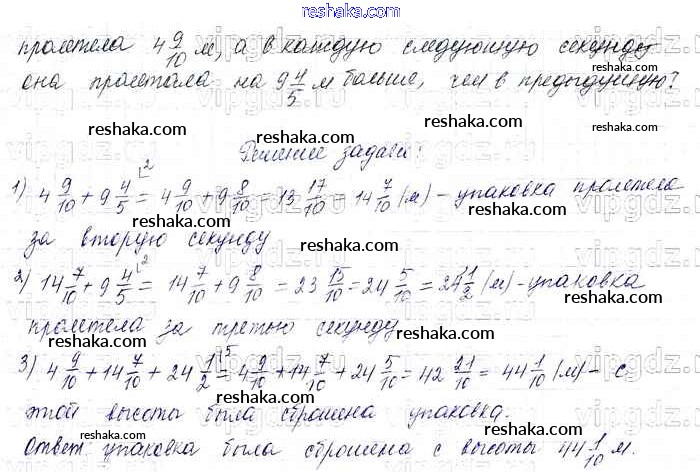 reshaka.com
пролетела 4 9/10 м, а в каждую следующую секунду
она пролетала на 9 4/5 м больше, чем в предыдущую?
reshaka.com reshaka.com
reshaka.com
Решение задачи:
1) 4 9/10 + 9 4/5 = 4 9/10 + 9 8/10 = 13 17/10 = 14 7/10 (м) – упаковка пролетела
reshaka.com reshaka.com
за вторую секунду
reshaka.com
2) 14 7/10 + 9 4/5 = 14 7/10 + 9 8/10 = 23 15/10 = 24 5/10 = 24 1/2 (м) – упаковка
reshaka.com reshaka.com
пролетела за третью секунду
reshaka.com
3) 4 9/10 + 14 7/10 + 24 1/2 = 4 9/10 + 14 7/10 + 24 5/10 = 42 21/10 = 44 1/10 (м) – с
reshaka.com reshaka.com
этой высоты была сброшена упаковка.
reshaka.com
Ответ: упаковка была сброшена с высоты 44 1/10 м.
reshaka.com reshaka.com